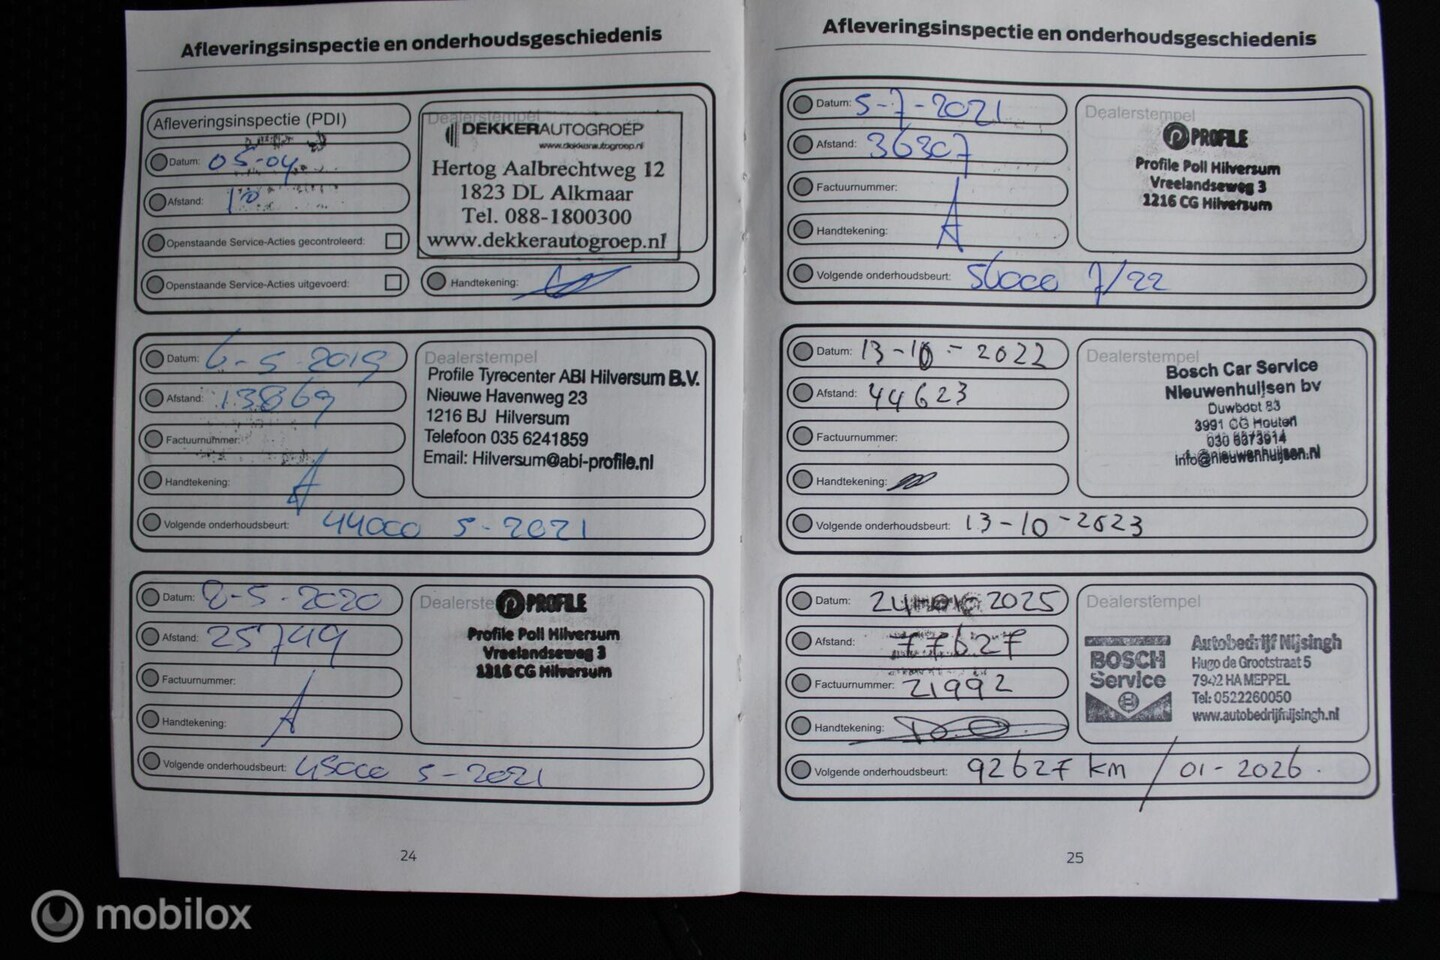 Afleveringsinspectie en onderhoudsgeschiedenis
Afleveringsinspectie (PDI)
Datum: 05-04
Afstand: 10
Openstaande Service-Acties gecontroleerd:
Openstaande Service-Acties uitgevoerd:
Dealerstempel
DEKKERAUTOGROEP
www.dekkerautogroep.nl
Hertog Aalbrechtweg 12
1823 DL Alkmaar
Tel. 088-1800300
www.dekkerautogroep.nl
Handtekening:
Datum: 6-5-2019
Afstand: 13869
Factuurnummer:
Handtekening:
Volgende onderhoudsbeurt: 44000 5-2021
Dealerstempel
Profile Tyrecenter ABI Hilversum B.V.
Nieuwe Havenweg 23
1216 BJ Hilversum
Telefoon 035 6241859
Email: Hilversum@abi-profile.nl
Datum: 8-5-2020
Afstand: 25749
Factuurnummer:
Handtekening:
Volgende onderhoudsbeurt: 45000 5-2021
Dealerste
PROFILE
Profile Poll Hilversum
Vreelandseweg 3
1216 CG Hilversum
24
Afleveringsinspectie en onderhoudsgeschiedenis
Datum: 5-7-2021
Afstand: 36307
Factuurnummer:
Handtekening:
Volgende onderhoudsbeurt: 56000 7/22
Dealerstempel
PROFILE
Profile Poll Hilversum
Vreelandseweg 3
1216 CG Hilversum
Datum: 13-10-2022
Afstand: 44623
Factuurnummer:
Handtekening:
Volgende onderhoudsbeurt: 13-10-2023
Dealerstempel
Bosch Car Service
Nieuwenhuijsen bv
Duwboot 83
3991 CG Houten
030 6373914
info@nieuwenhuijsen.nl
Datum: 24 2025
Afstand: 77627
Factuurnummer: 21992
Handtekening:
Volgende onderhoudsbeurt: 92627 km / 01-2026.
Dealerstempel
BOSCH
Service
Autobedrijf Nijsingh
Hugo de Grootstraat 5
7942 HA MEPPEL
Tel: 0522260050
www.autobedrijfnijsingh.nl
25
mobilox